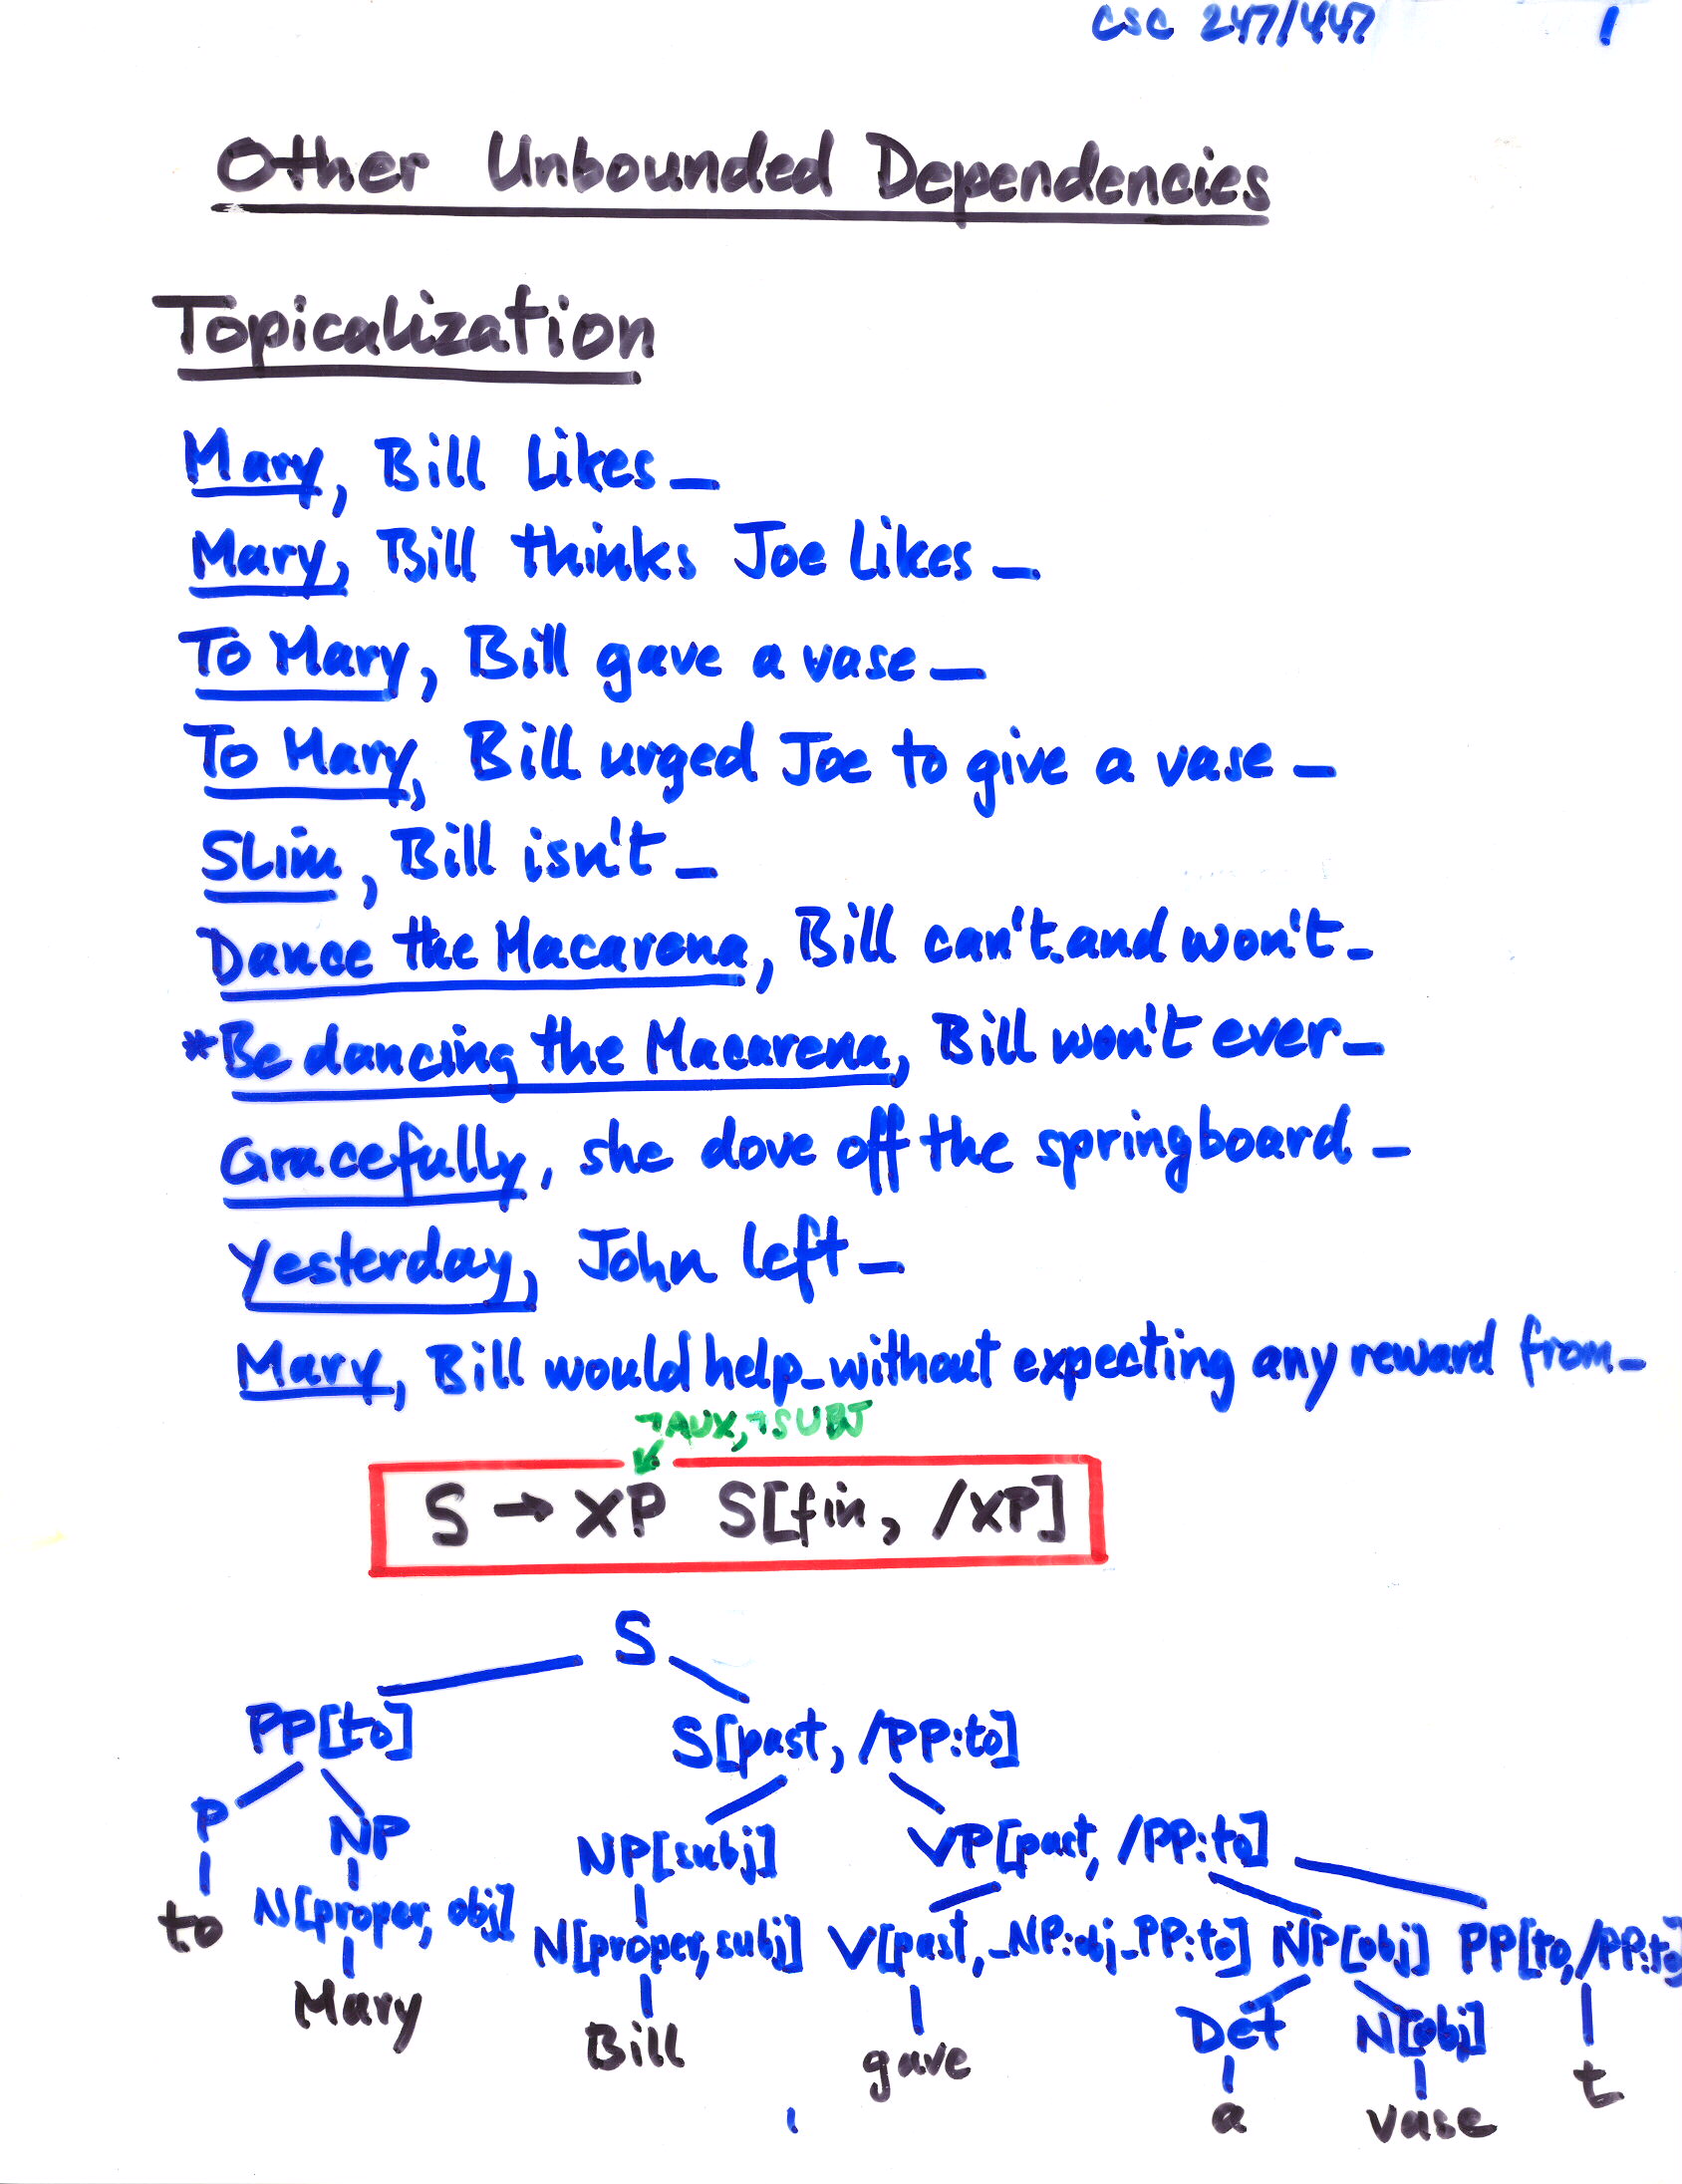 CSC 247/447 1
Other Unbounded Dependencies
Topicalization
Mary, Bill likes _
Mary, Bill thinks Joe likes _
To Mary, Bill gave a vase _
To Mary, Bill urged Joe to give a vase _
Slim, Bill isn't _
Dance the Macarena, Bill can't and won't _
*Be dancing the Macarena, Bill won't ever _
Gracefully, she dove off the springboard _
Yesterday, John left _
Mary, Bill would help _ without expecting any reward from _
¬AUX, ¬SUBJ
S → XP S[fin, /XP]
S
PP[to] S[past, /PP:to]
P NP NP[subj] VP[past, /PP:to]
to N[proper, obj] N[proper, subj] V[past, _NP:obj_PP:to] NP[obj] PP[to, /PP:to]
Mary Bill gave Det N[obj] t
a vase